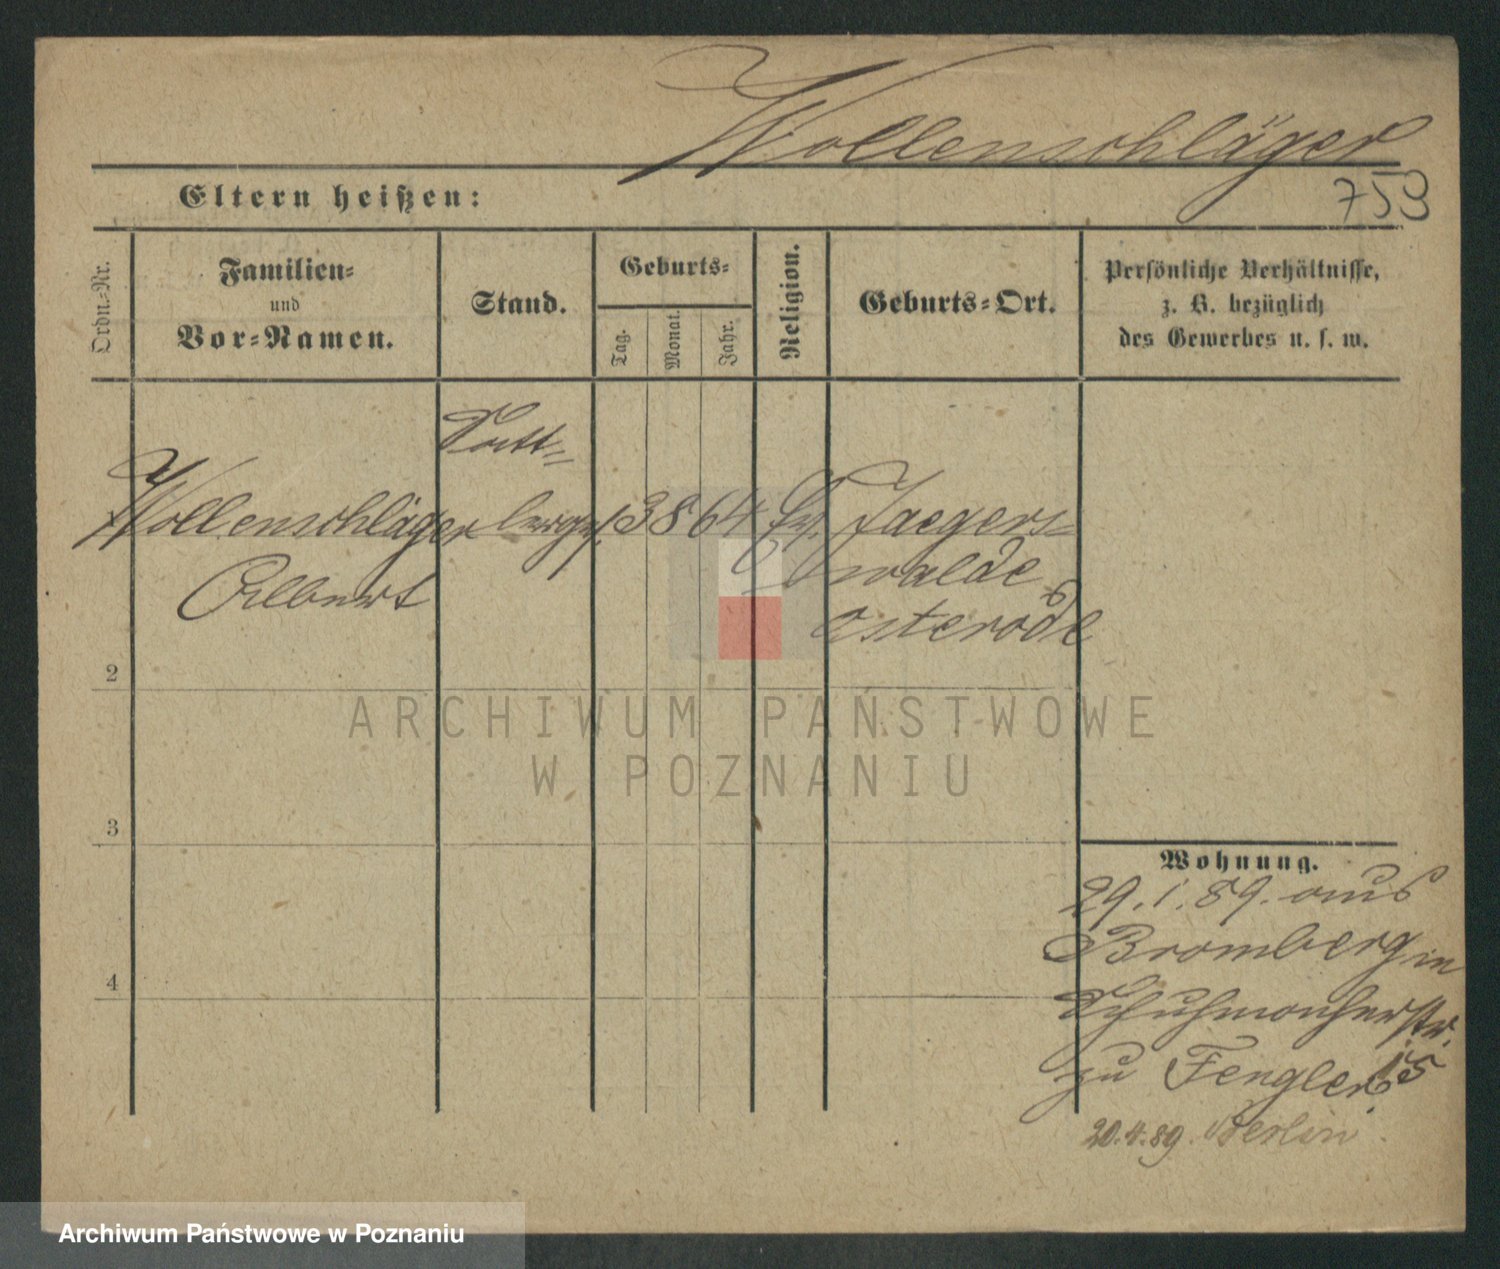 Wollenschläger
Eltern heißen:
753
Ordn.-Nr.
Familien-
und
Vor-Namen.
Stand.
Geburts-
Tag.
Monat.
Jahr.
Religion.
Geburts-Ort.
Persönliche Verhältnisse,
z. B. bezüglich
des Gewerbes u. s. w.
Satt-
Wollenschläger lerges. 3 8 64 Ev. Jaegers-
Albert walde
Osterode
2
3
4
ARCHIWUM PAŃSTWOWE
W POZNANIU
Wohnung.
29.1.89. aus
Bromberg in
Schuhmacherstr.
zu Fengler 15
20.4.89. Berlin.
Archiwum Państwowe w Poznaniu